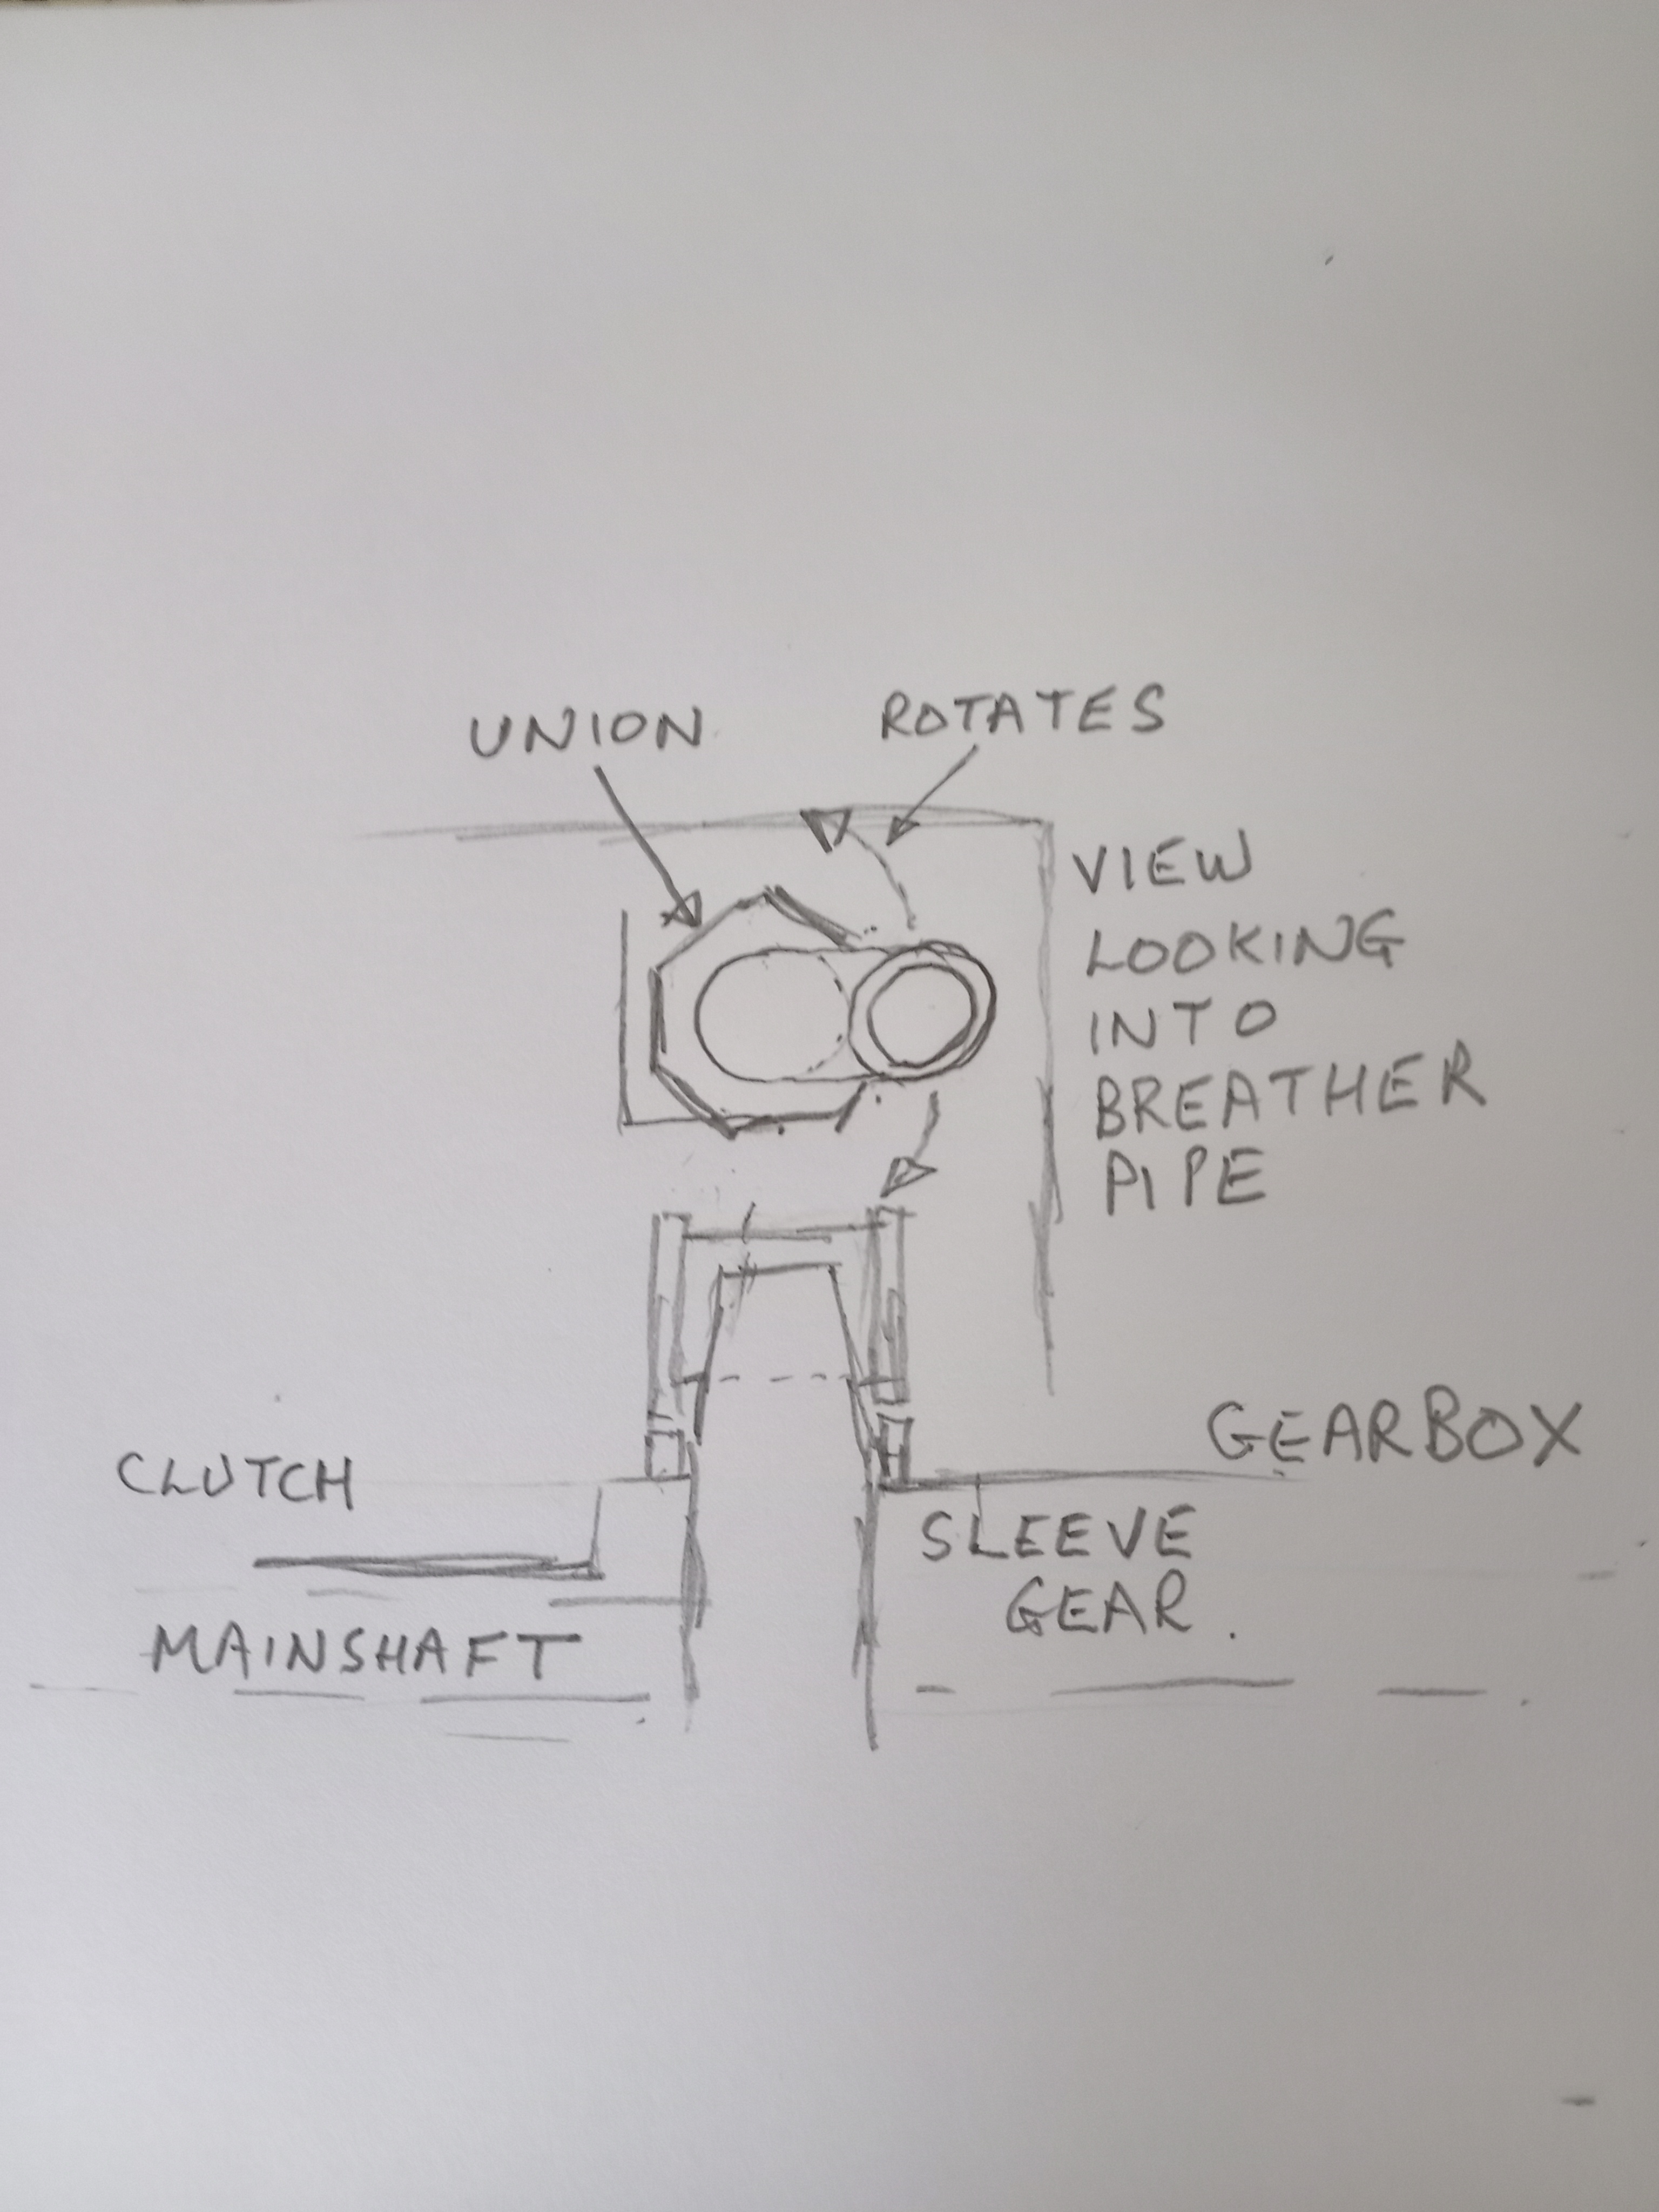 UNION
ROTATES
VIEW
LOOKING
INTO
BREATHER
PIPE
GEARBOX
CLUTCH
SLEEVE
GEAR.
MAINSHAFT